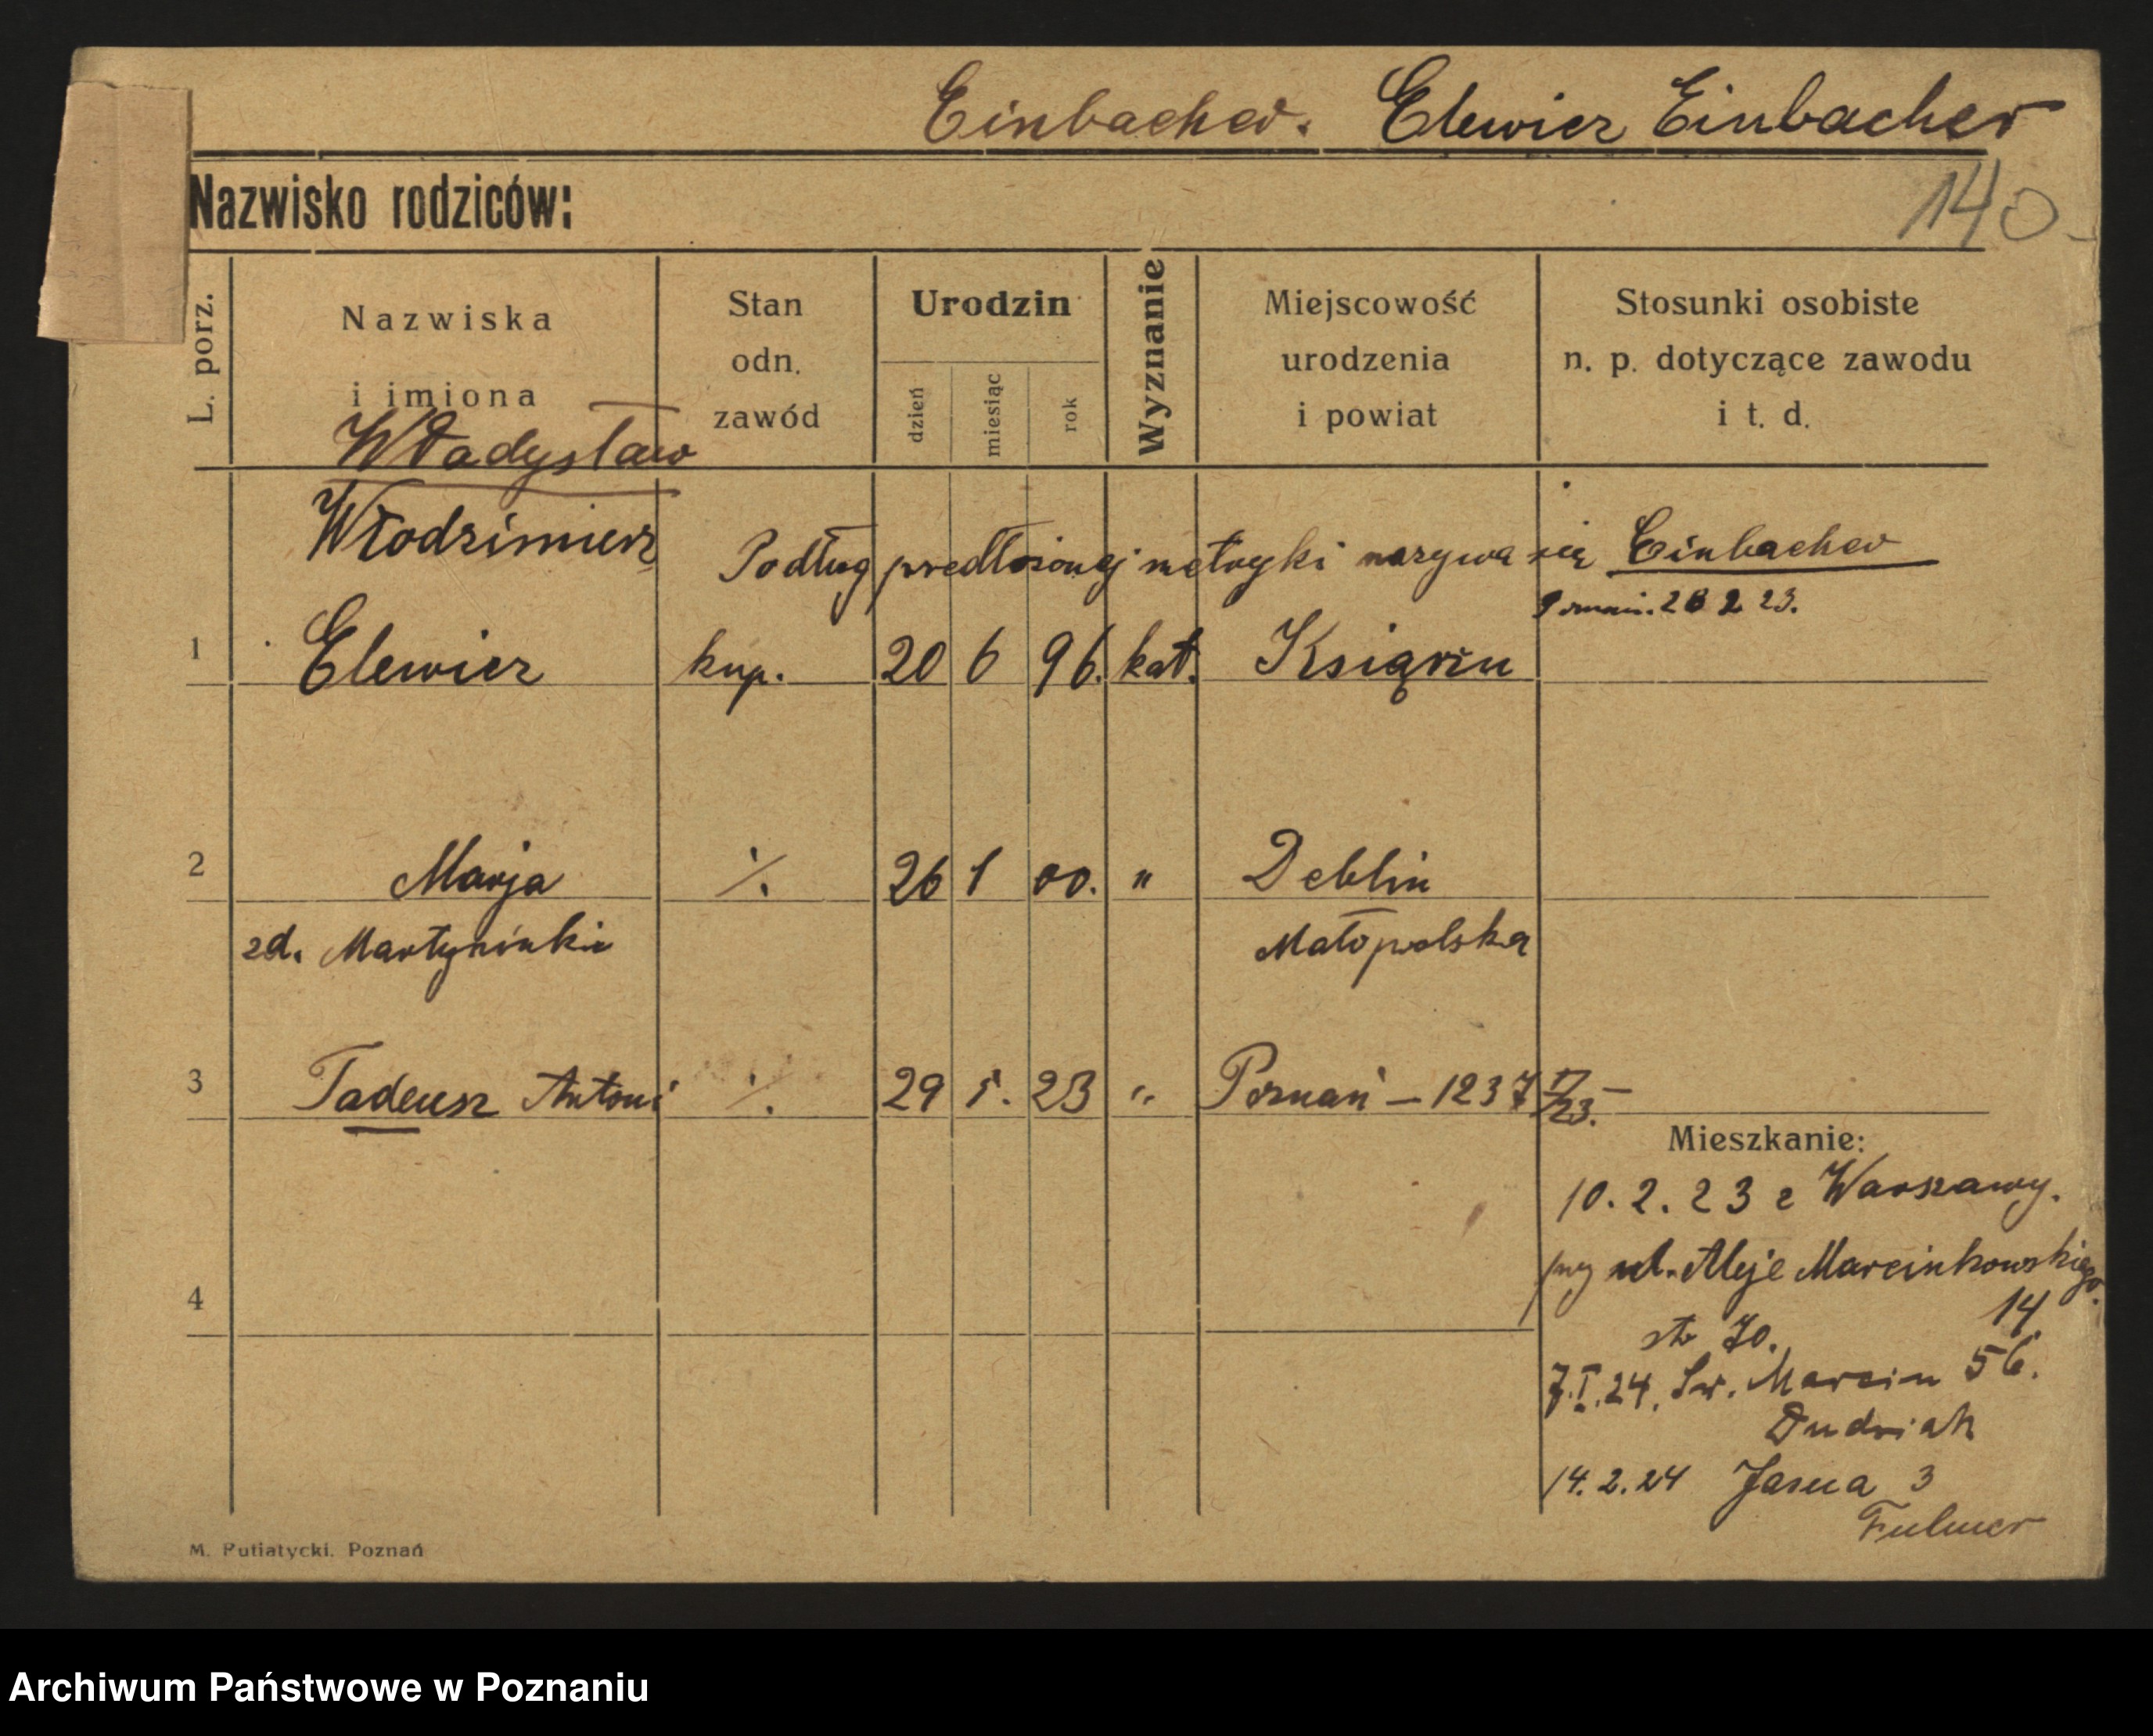 Einbacher. Elewicz Einbacher
Nazwisko rodziców:
140
L. porz.
Nazwiska
i imiona
Stan
odn.
zawód
Urodzin
dzień
miesiąc
rok
Wyznanie
Miejscowość
urodzenia
i powiat
Stosunki osobiste
n. p. dotyczące zawodu
i t. d.
Władysław
Włodzimierz Podług predłożonej metryki nazywa się Einbacher
Poznań. 28 2 23.
1 Elewicz kup. 20 6 96. kat.
2 Marja ·/. 26 1 00. " Deblin
zd. Małopolska
3 Tadeusz Antoni ·/. 29 5. 23 " Poznań – 1237 V/23. –
Mieszkanie:
10. 2. 23 z Warszawy.
przy ul. Aleje Marcinkowskiego.
14
str 70.
4
7.I.24. Św. Marcin 56.
Dudziak
14. 2. 24 Jasna 3
Fulmer
M. Putiatycki. Poznań
Archiwum Państwowe w Poznaniu